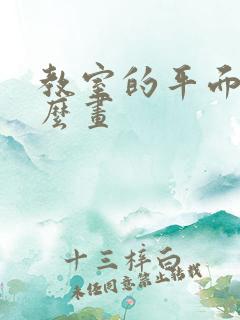 教室的平面
麼畫
十三梓白
未经同意禁止转载